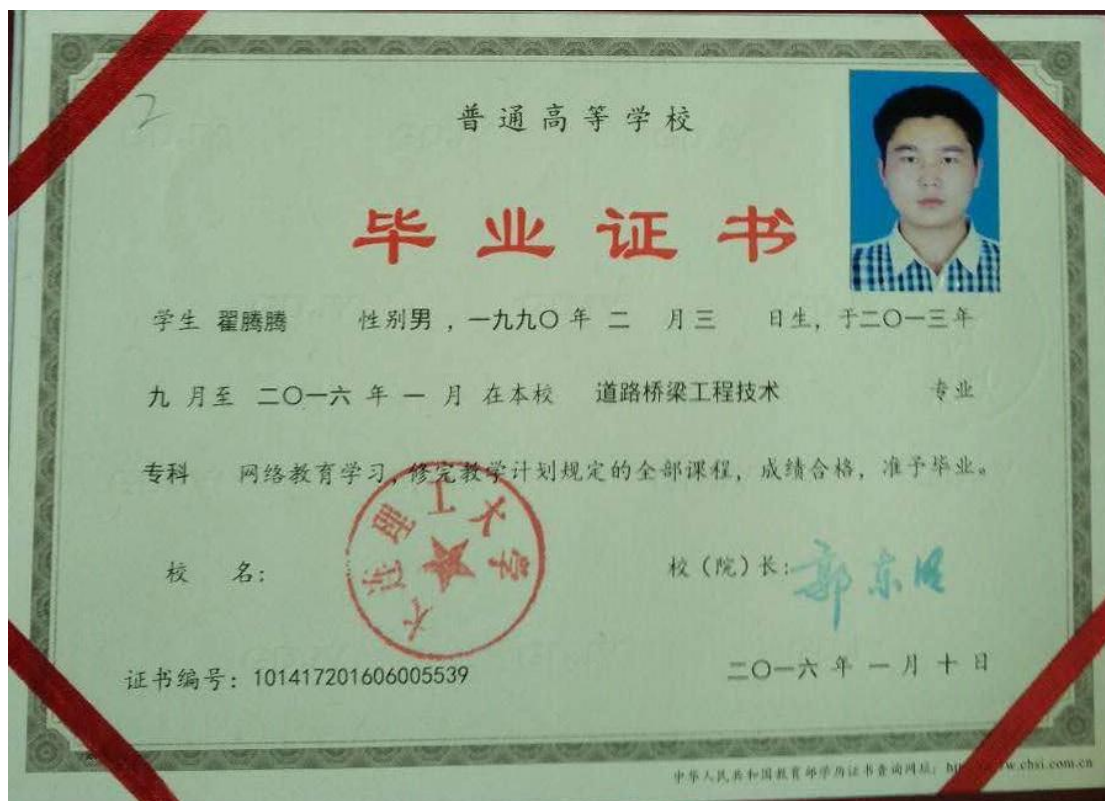 2
普通高等学校
毕业证书
学生 翟腾腾 性别男 ,一九九〇年 二 月三 日生, 于二〇一三年
九 月至 二〇一六 年 一 月 在本校 道路桥梁工程技术 专业
专科 网络教育学习,修完教学计划规定的全部课程, 成绩合格, 准予毕业。
大连理工大学
校 名:
校(院)长: 郭东明
证书编号: 101417201606005539
二〇一六 年 一 月 十 日
中华人民共和国教育部学历证书查询网址: w.chsi.com.cn